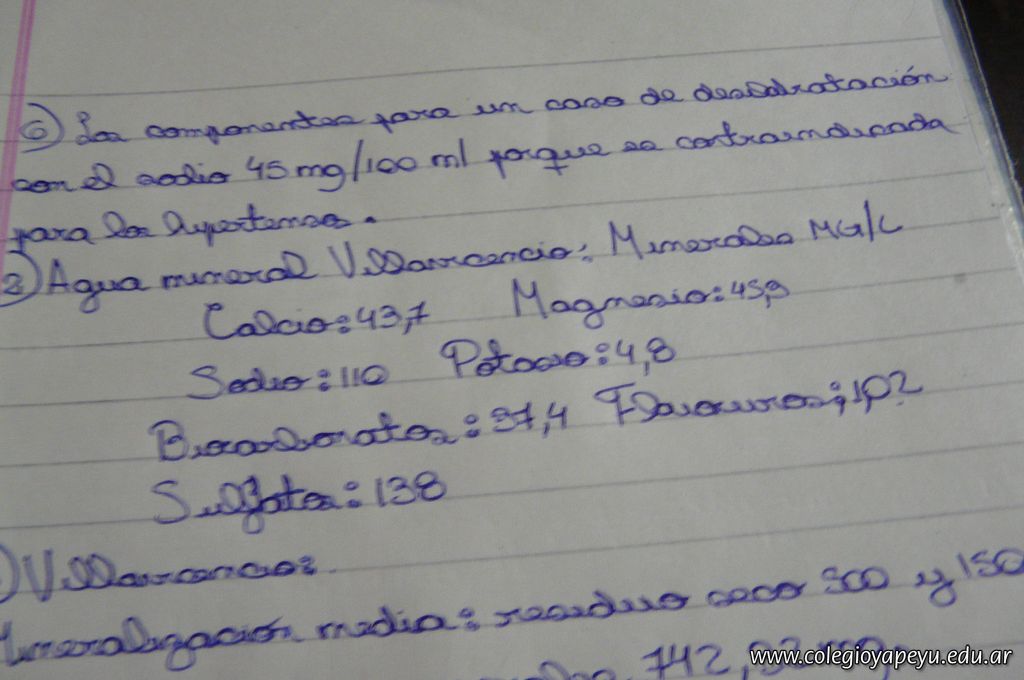 6) Los componentes para un caso de desidratación
son el sodio 45 mg/100 ml porque es contraindicada
para los hipertensos.
Agua mineral Villavicencio: Minerales MG/L
Calcio: 43,7 Magnesio: 45,9
Sodio: 110 Potasio: 4,8
Bicarbonatos: 37,4 Flaoruros: 1,02
Sulfatos: 138
Villavicencio:
Mineralización media: residuo seco 500 y 150
742,
www.colegioyapeyu.edu.ar